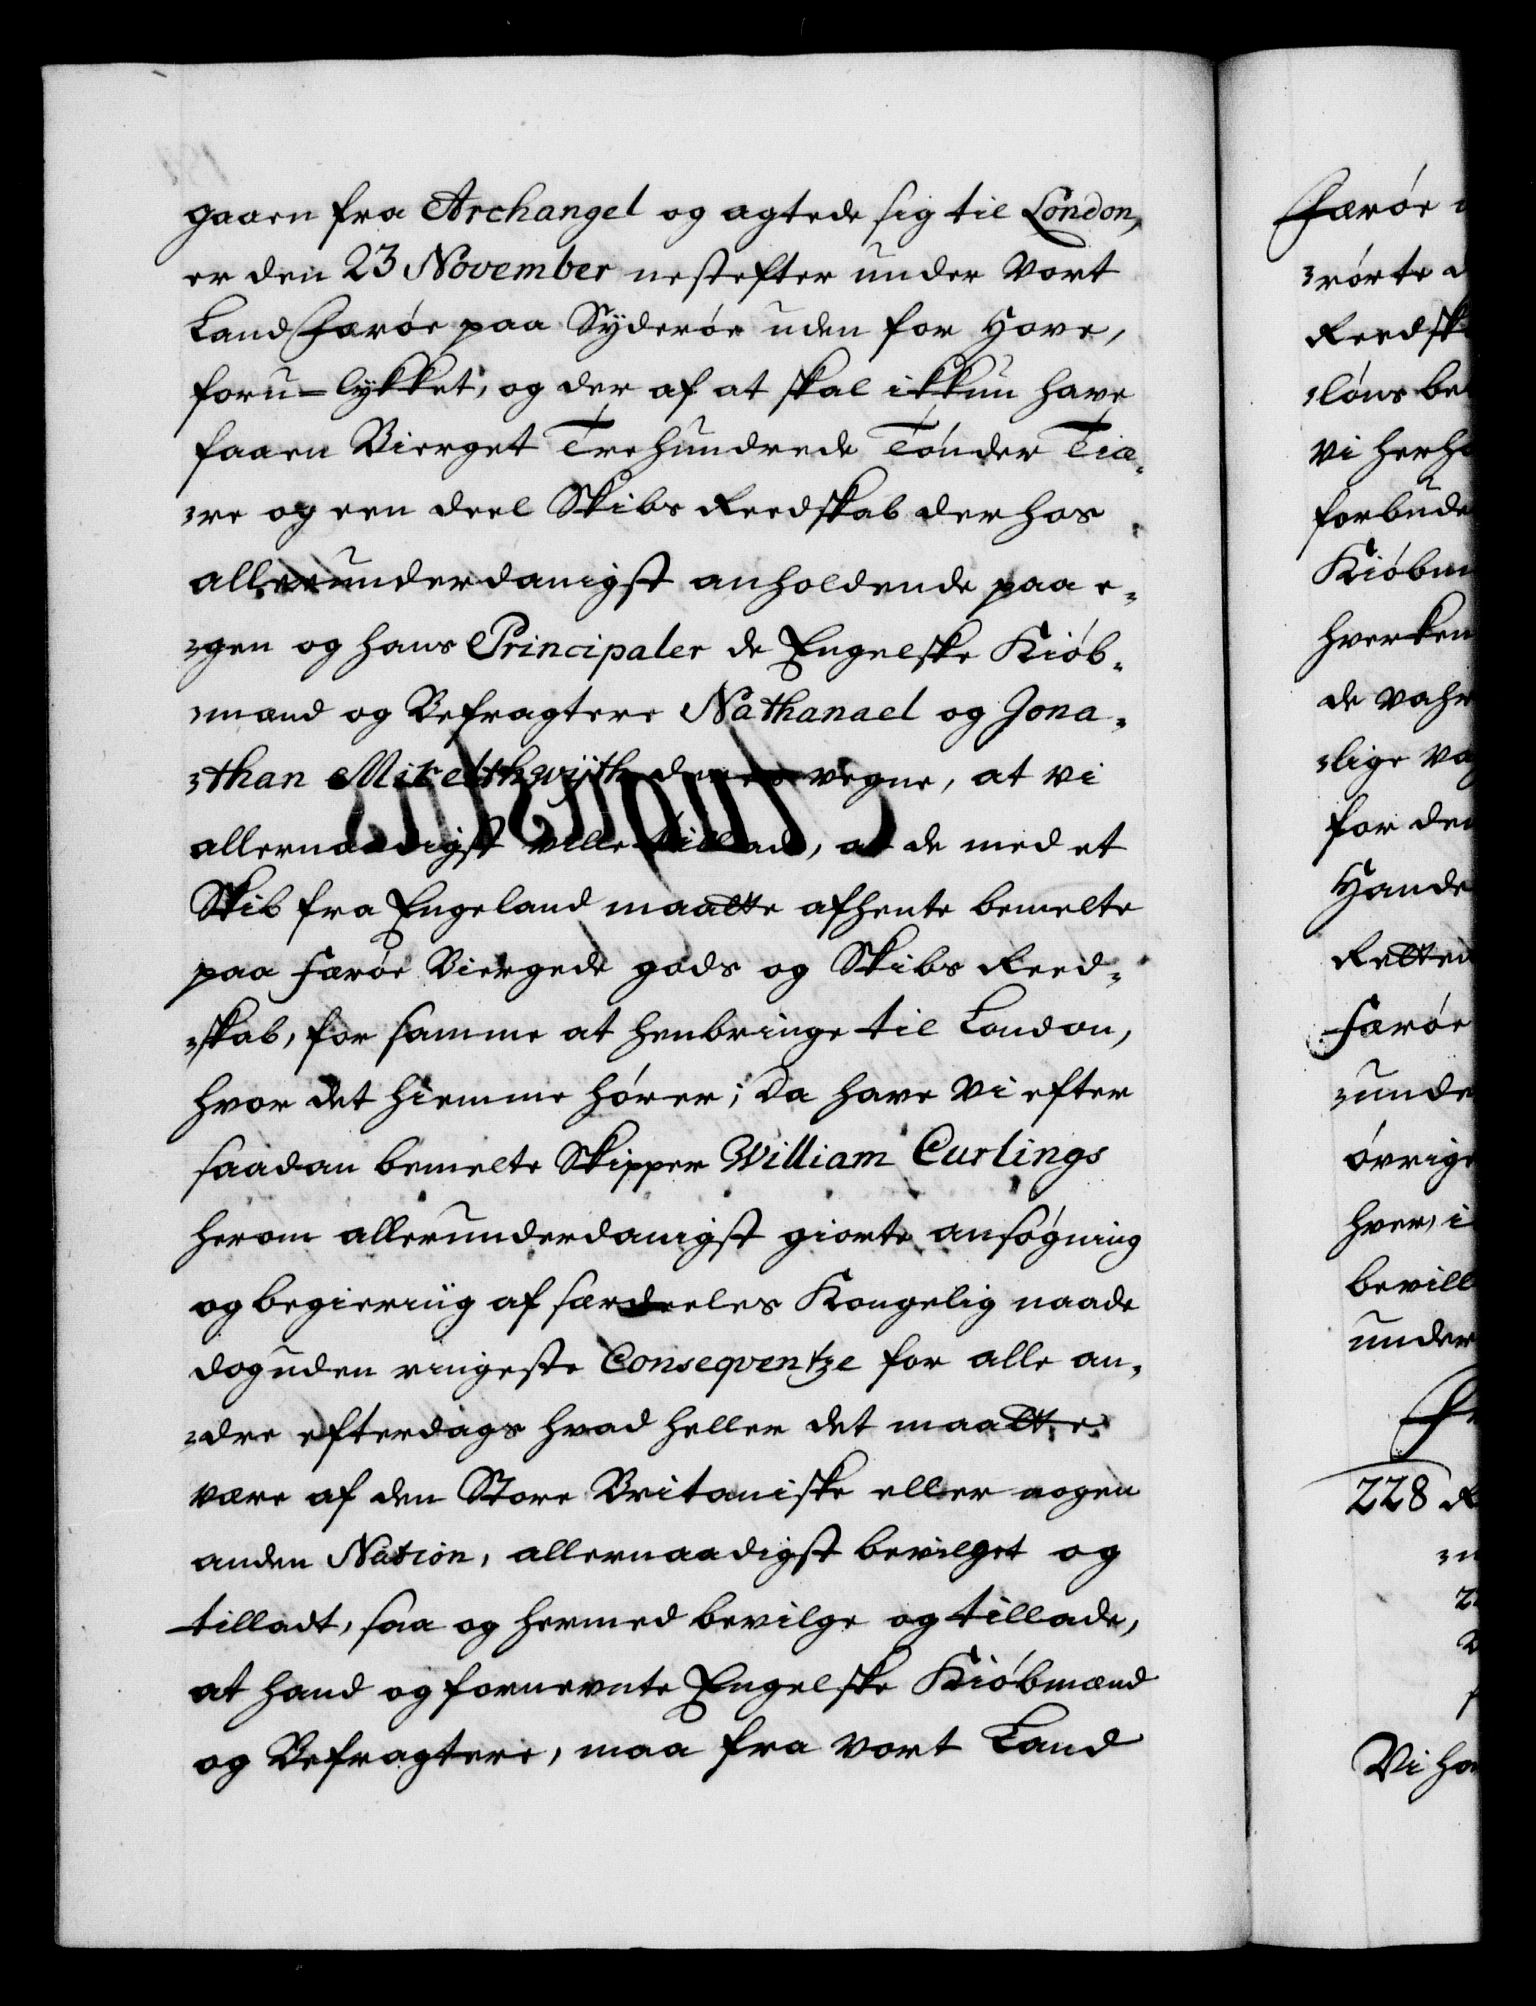 gaaen fra Archangel og agtede sig til London,
er den 23 November nestefter under Vort
Land Færøe paa Syderøe uden for Hove,
foru-lykket, og der af at skal ikkun have
faaen Bierget Trehundrede Tønder Tiæ-
-re og een deel Skibs Reedskab der hos
allerunderdanigst anholdende paa e-
-gen og hans Principaler de Engelske Kiøb-
-mænd og Befragtere Nathanael og Jona-
-than deres vegne, at vi
allernaadigst ville tillade, at de med et
Skib fra Engeland maatte afhente bemelte
paa Færøe Biergede gods og Skibs Reed-
-skab, for samme at henbringe til London,
hvor det hiemme hører; Da have Vi efter
saadan bemelte Skipper William Curlings
herom allerunderdanigst giorte ansøgning
og begiering af særdeeles Kongelig naade
dog uden ringeste Conseqventze for alle an-
-dre efterdags hvad heller det maatte
være af den Store Britaniske eller nogen
anden Nation, allernaadigst bevilget og
tilladt, saa og hermed bevilge og tillade,
at hand og fornevnte Engelske Kiøbmænd
og Befragtere, maa fra vort Land
Færøe
-rørte
Reedsk
-løns be
vi herh
forbude
Kiøbm
hverken
de vahr
-lige va
for den
Hande
Retten
Færøe
-unde
øvrige
hver, i
bevill
under
228 R
Vi ha